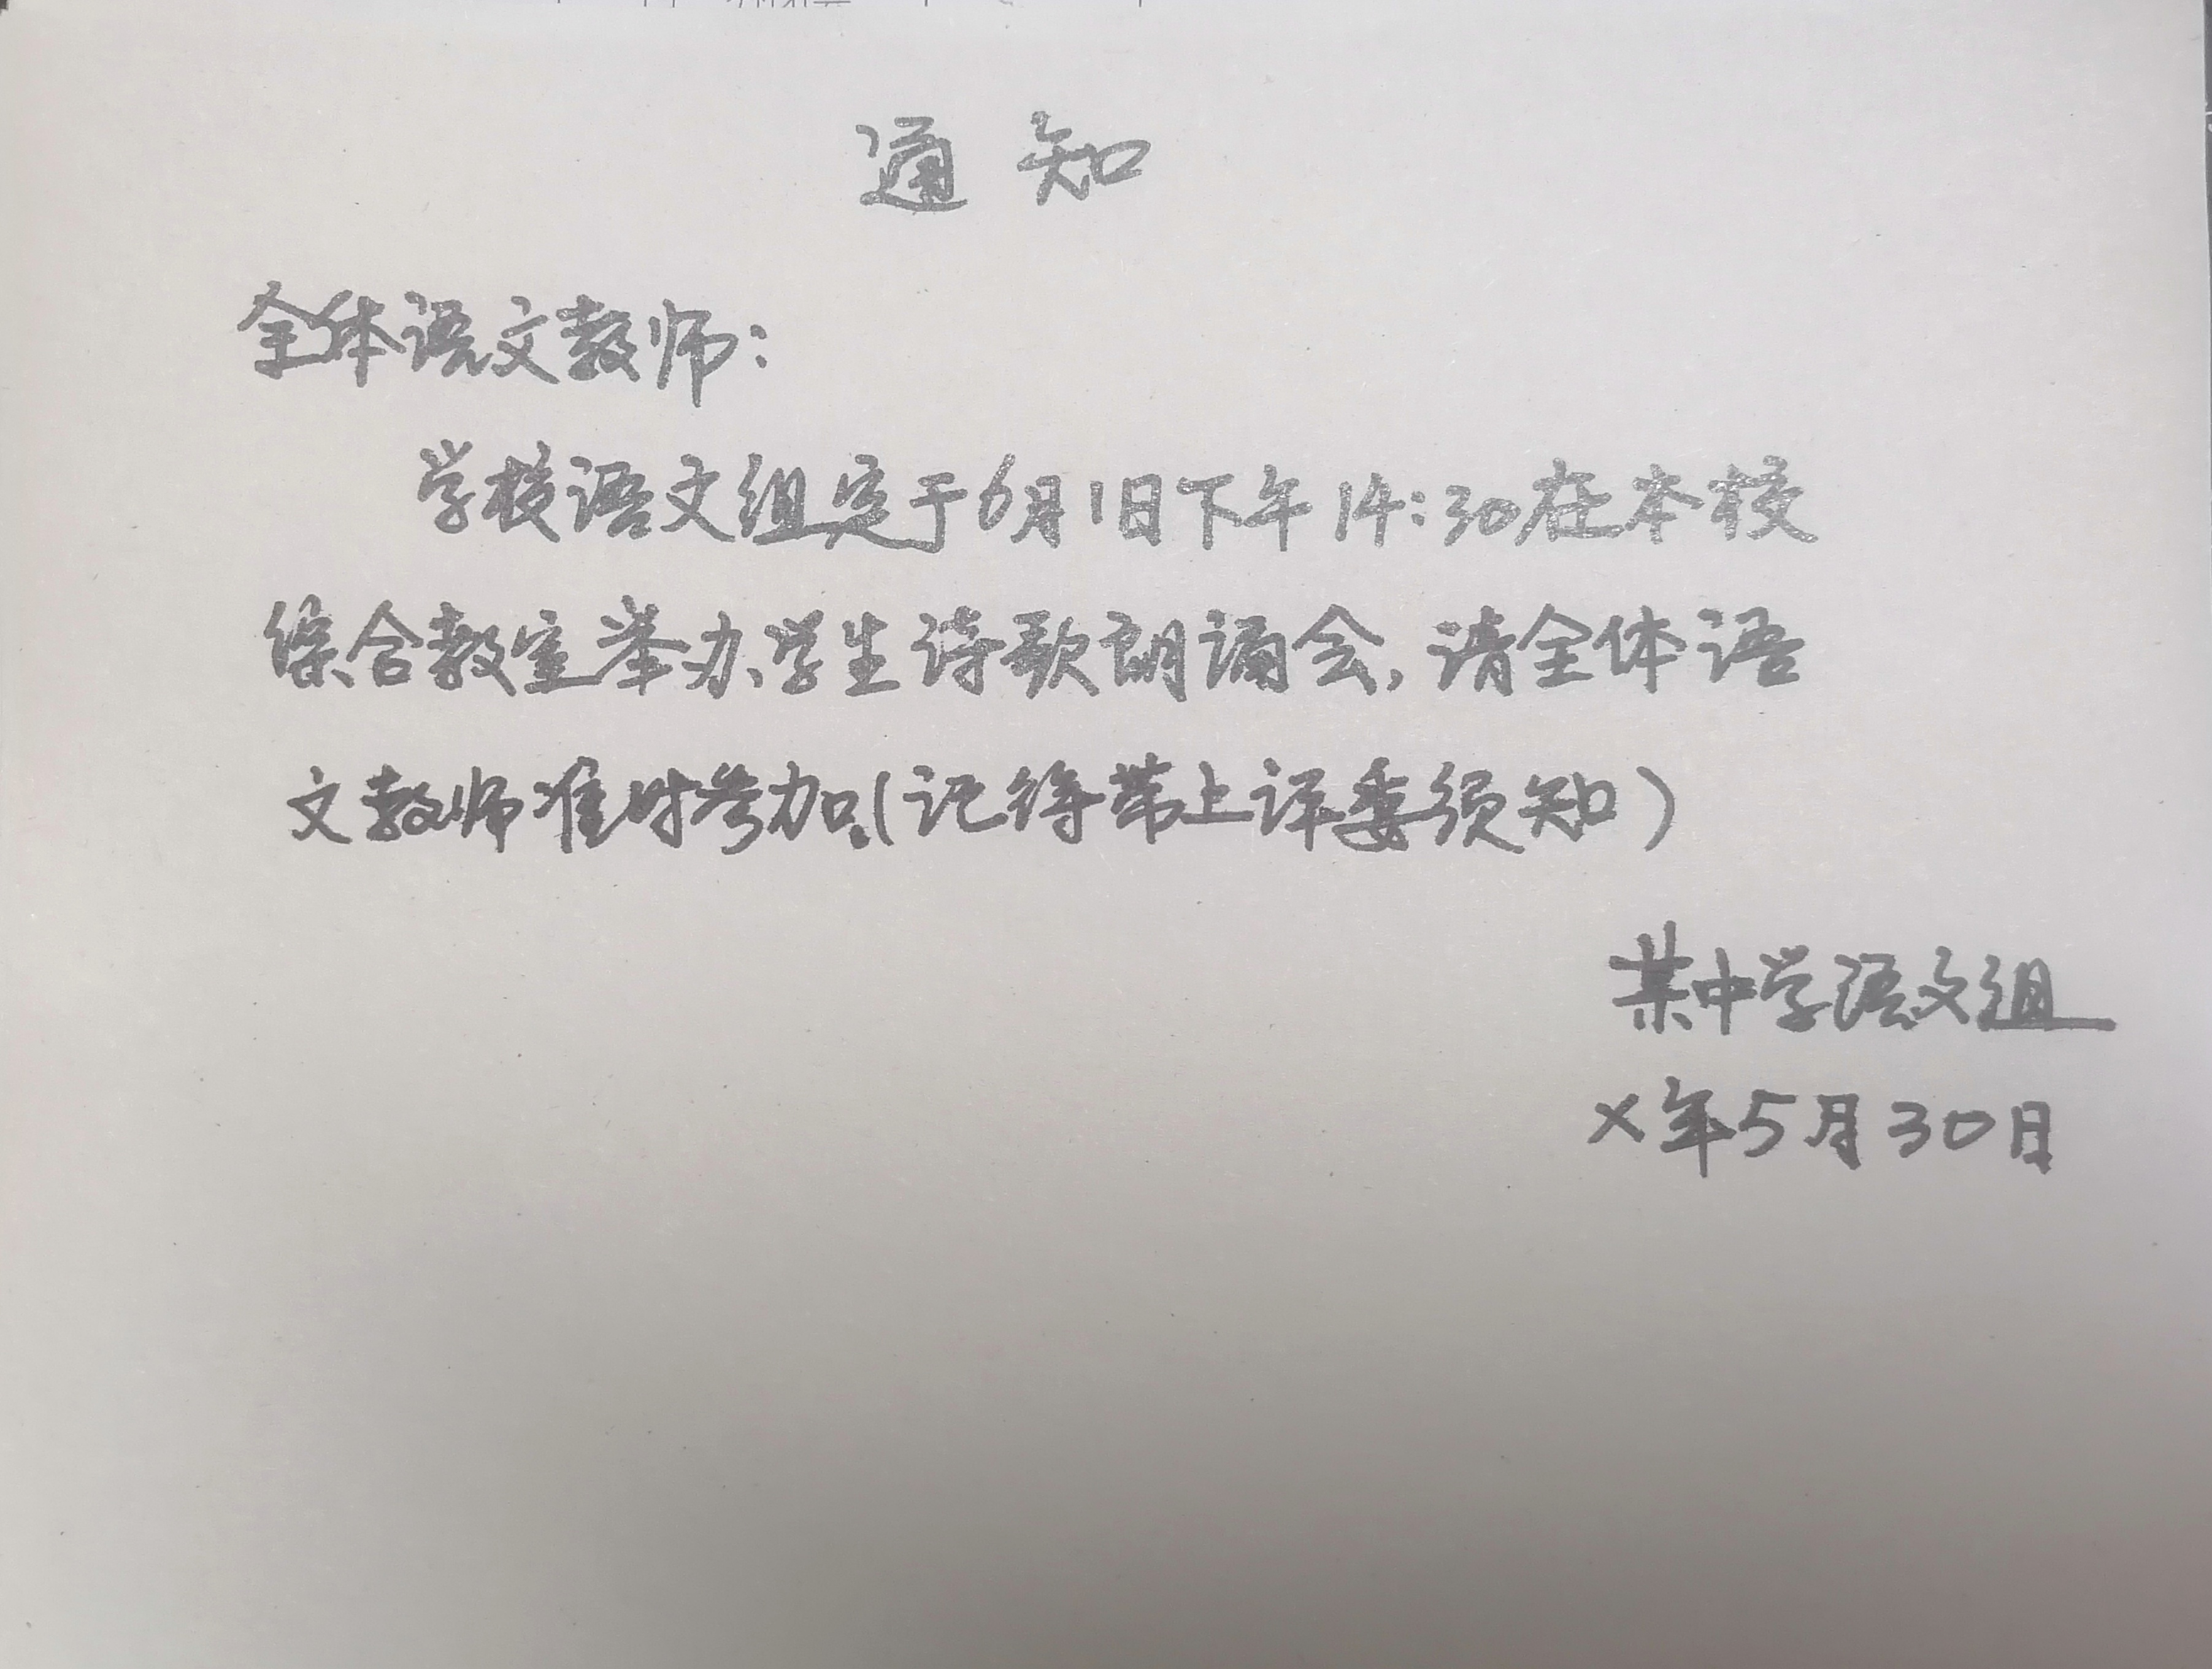 通知
全体语文教师:
学校语文组定于6月1日下午14:30在本校
综合教室举办学生诗歌朗诵会,请全体语
文教师准时参加。(记得带上评委须知)
某中学语文组
×年5月30日